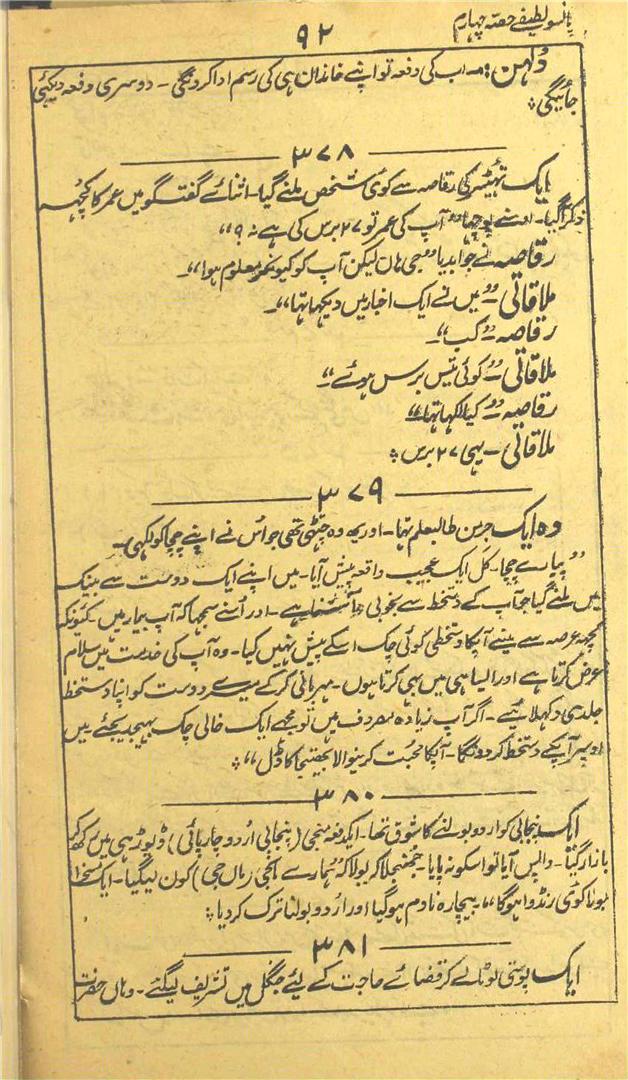 پانسو لطیفے حصہ چہارم
۹۲
دُلہن :۔ اب کی دفعہ تو اپنے خاندان ہی کی رسم ادا کرونگی ۔ دوسری دفعہ دیکھی
جائیگی ؞
۳۷۸
ایک تھیٹر کی رقاصہ سے کوئی شخص ملنے گیا ۔ اثنائے گفتگو میں عمر کا کچھہ
ذکر آگیا ۔ اوسنے پوچہا ’’ آپ کی عمر تو ۲۷ برس کی ہے نہ ؟ ‘‘
رقاصہ نے جوابدیا ’’ جی ہاں لیکن آپ کو کیونکر معلوم ہوا ‘‘ ۔
ملاقاتی ۔ ’’ میں نے ایک اخبار میں دیکہا تہا ‘‘ ۔
رقاصہ ۔ ’’ کب ‘‘ ۔
ملاقاتی ۔ ’’ کوئی تیس برس ہوئے ‘‘ ۔
رقاصہ ۔ ’’ کیا لکہا تہا ‘‘
ملاقاتی ۔ یہی ۲۷ برس ؞
۳۷۹
وہ ایک جرمن طالبعلم تہا ۔ اور یہ وہ چٹھی تھی جو اُس نے اپنے چچا کو لکہی ۔
’’ پیارے چچا ۔ کل ایک عجیب واقعہ پیش آیا ۔ میں اپنے ایک دوست سے بینک
میں ملنے گیا جو آپ کے دستخط سے بخوبی آشنا ہے ۔ اور اُسنے سمجہا کہ آپ بیمار ہیں ۔ کیونکہ
کچھہ عرصہ سے مینے آپکا دستخطی کوئی چک اسکے پیش نہیں کیا ۔ وہ آپ کی خدمت میں سلام
عرض کرتا ہے اور ایسا ہی میں بہی کرتا ہوں ۔ مہربانی کر کے میرے دوست کو اپنا دستخط
جلدی دکہلائیے ۔ اگر آپ زیادہ مصروف ہیں تو مجھے ایک خالی چک بہیجدیجئے میں
اوسپر آپکے دستخط کر دونگا ۔ آپکا محبت کرنیوالا بھتیجا کاڈل ‘‘ ؞
۳۸۰
ایک پنجابی کو اردو بولنے کا شوق تھا ۔ ایکدفعہ منجی ( پنجابی اُردو چارپائی ) ڈیوڑہی میں رکھ کر
بازار گیا ۔ واپس آیا تو اسکو نہ پایا ۔ جہنجلا کر بولا کہ ’’ ہمارے مانجی ( ماں جی ) کون لیگیا ۔ ایک مسخرا
بولا کوئی رنڈوا ہوگا ‘‘ ۔ بیچارہ نادم ہوگیا اور اُردو بولنا ترک کردیا ؞
۳۸۱
ایک پوستی لوٹا لے کر قضائے حاجت کے لیئے جنگل میں تشریف لیگئے ۔ وہاں حضرت